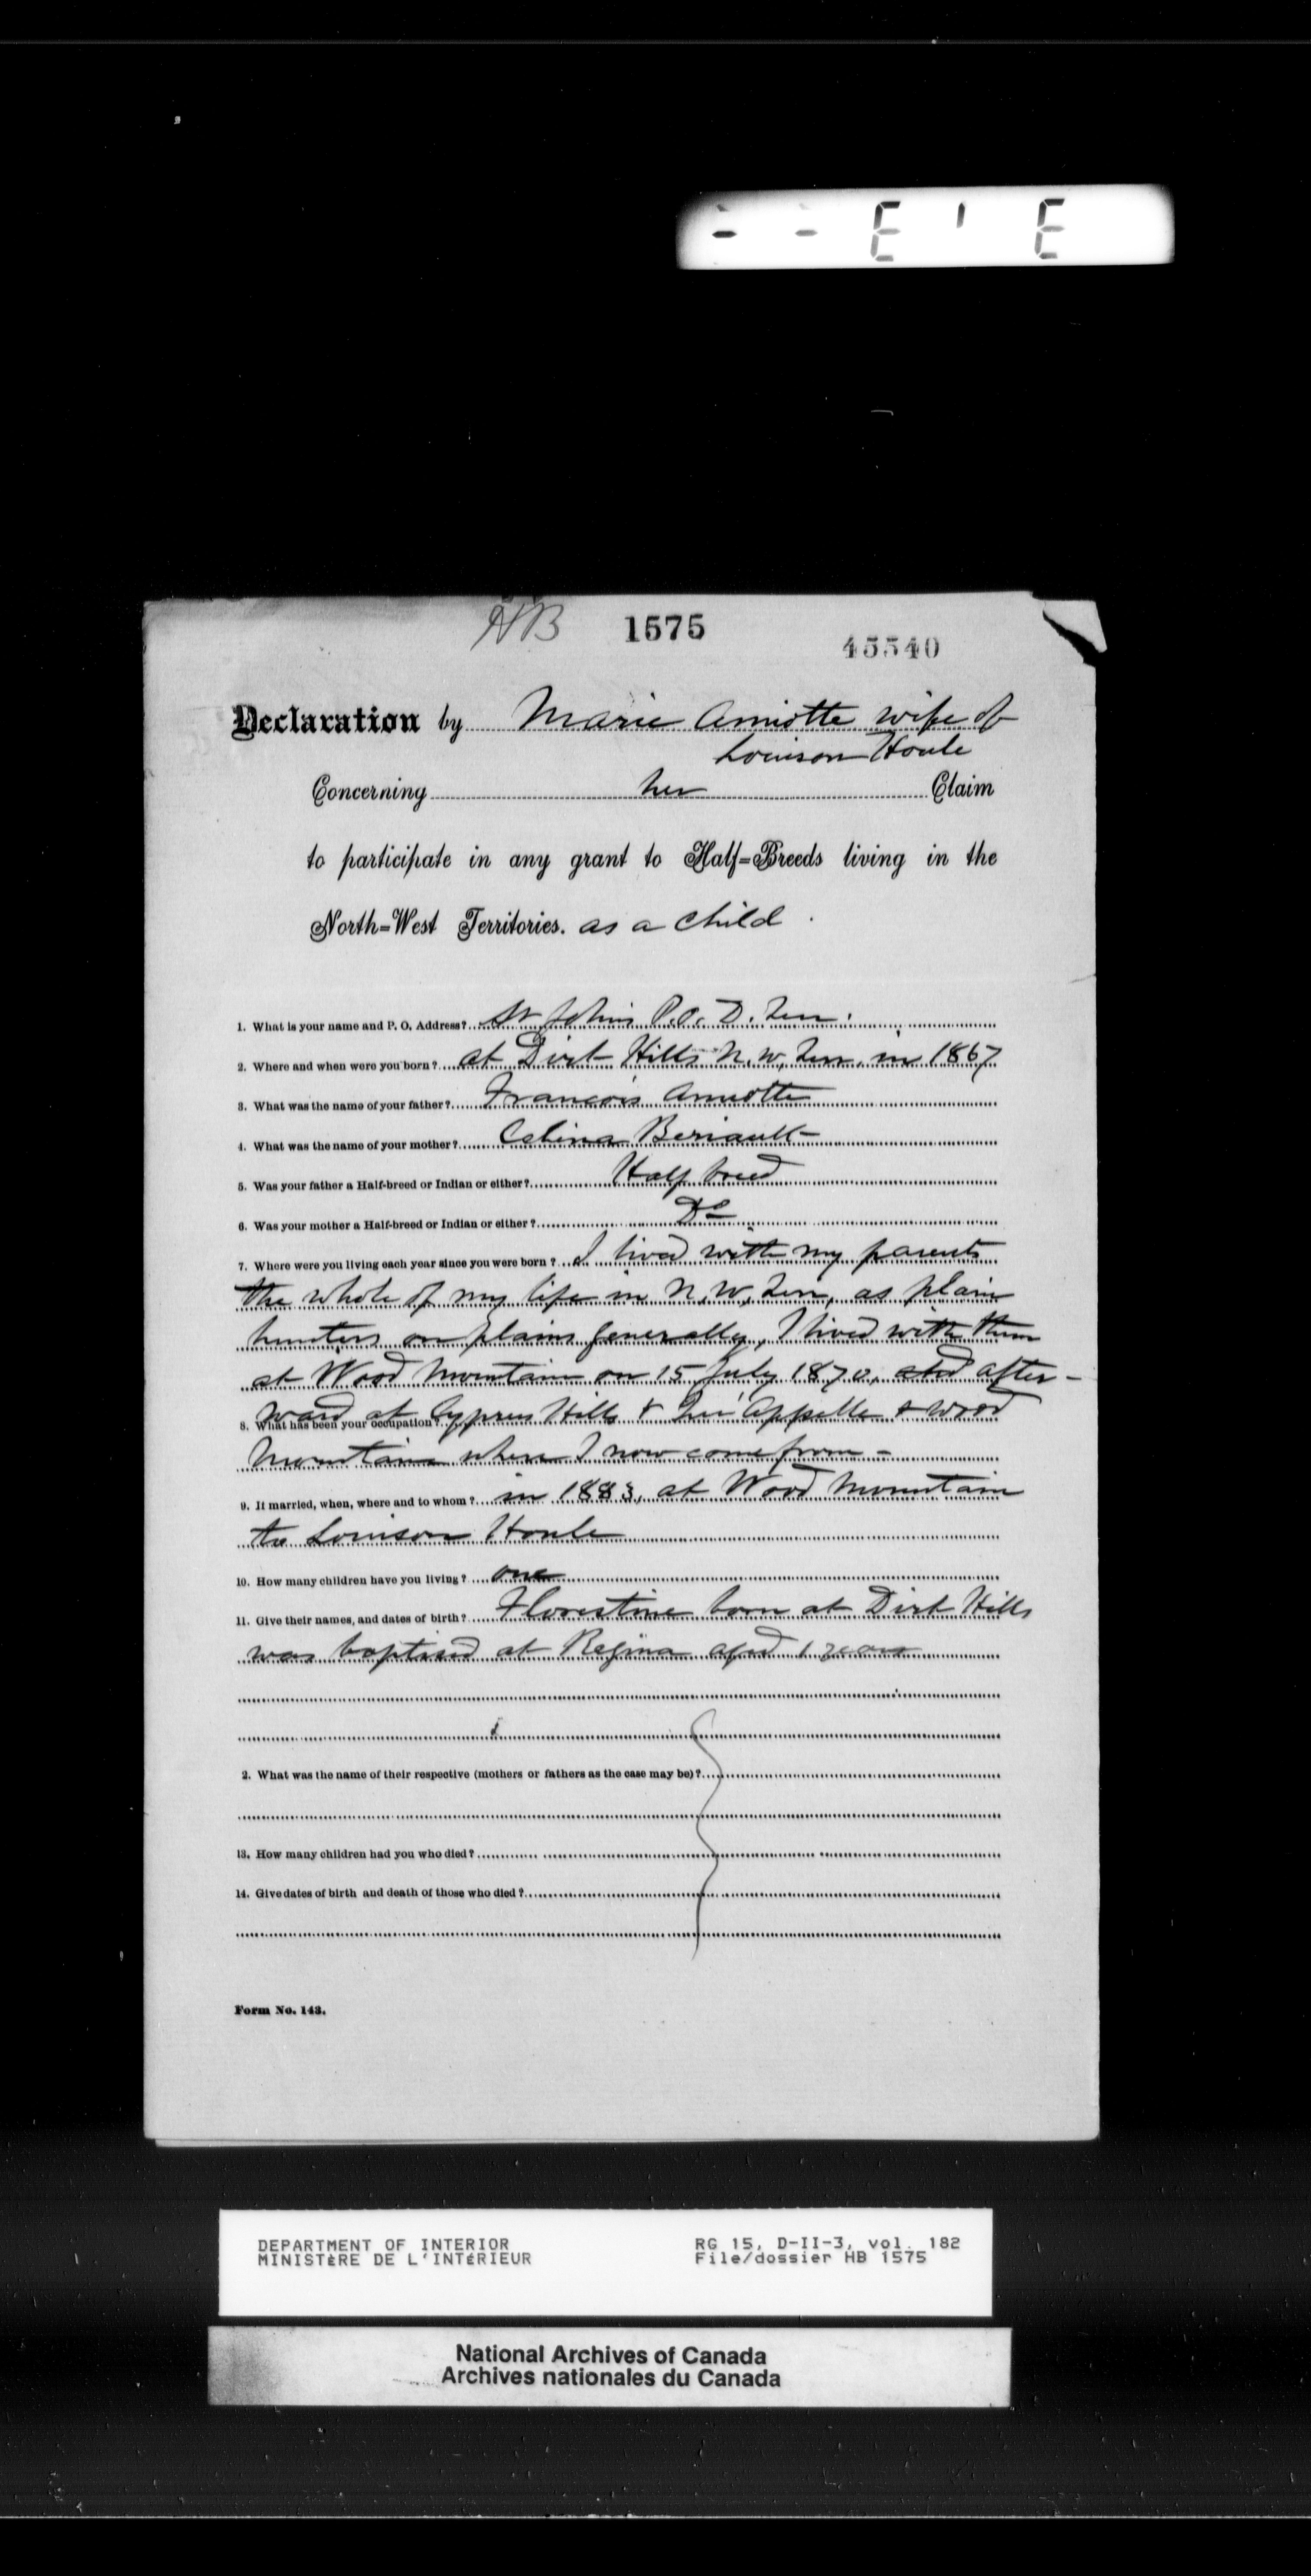 - - E ' E
HB 1575 45540
Declaration by Marie Amiotte wife of
Louison Houle
Concerning her Claim
to participate in any grant to Half-Breeds living in the
North-West Territories. as a child.
1. What is your name and P. O. Address? St Johns P.O. D. Terr.
2. Where and when were you born? at Dirt Hills N.W. Terr. in 1867
3. What was the name of your father? Francois Amiotte
4. What was the name of your mother? Celina Beriault
5. Was your father a Half-breed or Indian or either? Half breed
6. Was your mother a Half-breed or Indian or either? Do
7. Where were you living each year since you were born? I lived with my parents
the whole of my life in N.W. Terr, as plain
hunters on plains generally, I lived with them
at Wood Mountain on 15 July 1870, and after-
8. What has been your occupation? ward at Cypress Hills & Qu'Appelle & Wood
Mountain where I now come from -
9. If married, when, where and to whom? in 1883, at Wood Mountain
to Louison Houle
10. How many children have you living? one
11. Give their names, and dates of birth? Florestine born at Dirt Hills
was baptised at Regina aged 1 years
2. What was the name of their respective (mothers or fathers as the case may be)?
13. How many children had you who died?
14. Give dates of birth and death of those who died?
Form No. 143.
DEPARTMENT OF INTERIOR RG 15, D-II-3, vol. 182
MINISTÈRE DE L'INTÉRIEUR File/dossier HB 1575
National Archives of Canada
Archives nationales du Canada